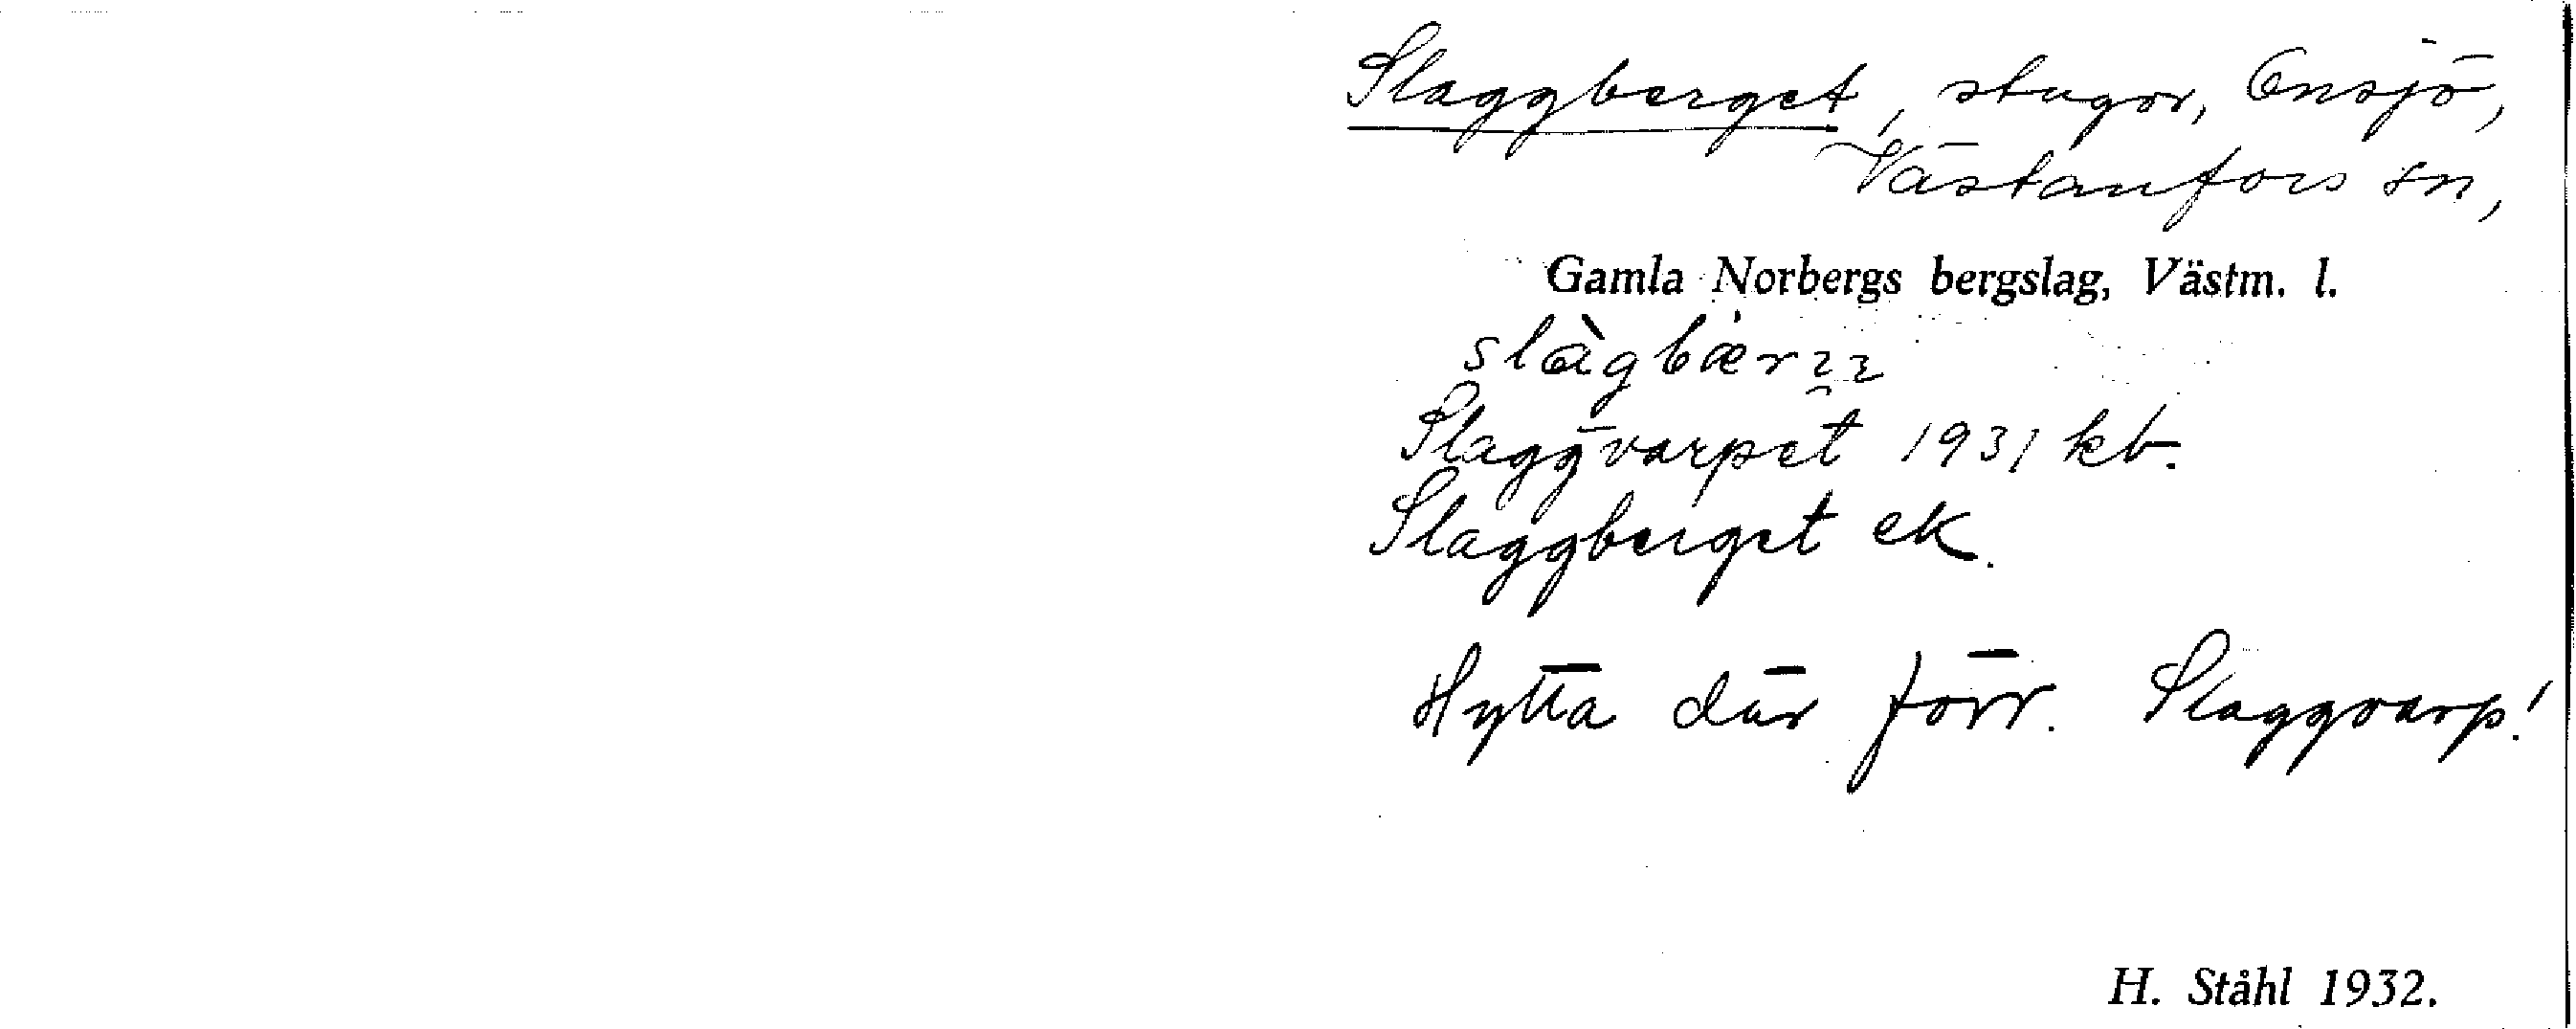 Slaggberget, stugor, Onsjö,
Västanfors sn,
Gamla Norbergs bergslag, Västm. l.
Slaggvarpet 1931 kb.
Slaggberget ek.
Hytta där förr. Slaggvarp!
H. Ståhl 1932.